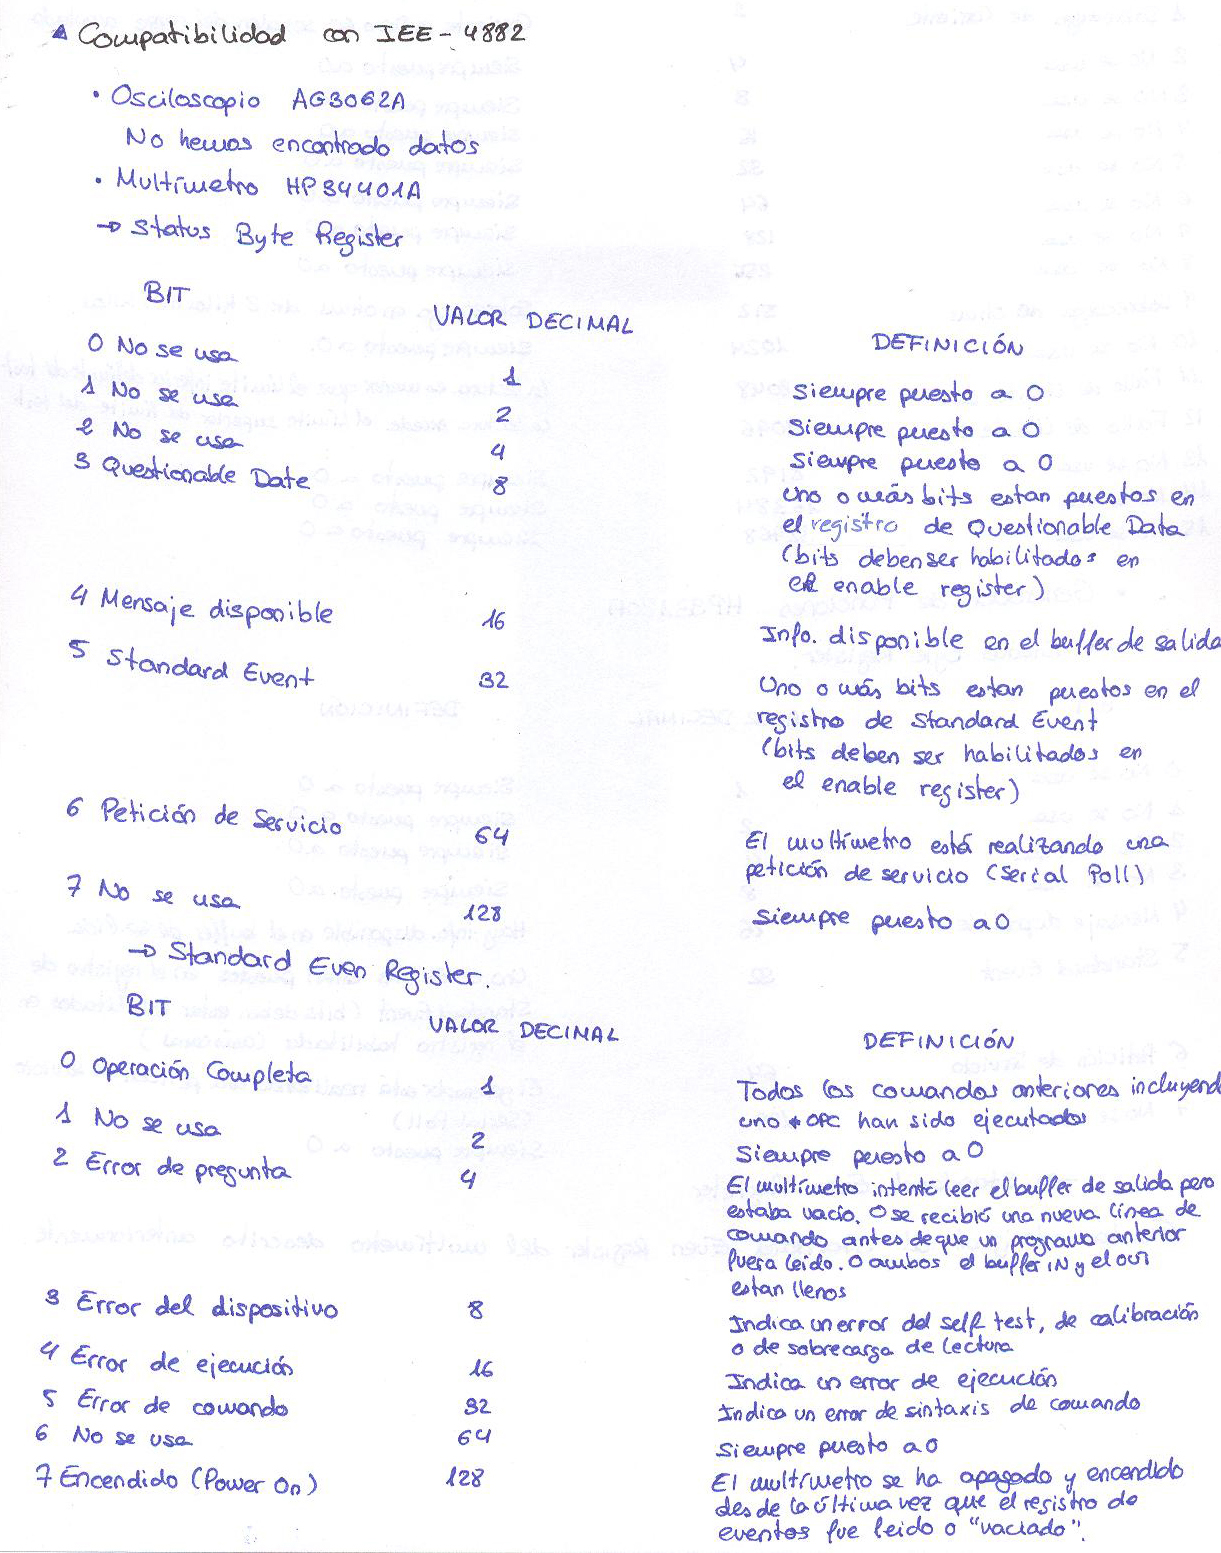 Compatibilidad con IEE-4882
• Osciloscopio AG3062A
No hemos encontrado datos
• Multímetro HP34401A
→ Status Byte Register
BIT VALOR DECIMAL DEFINICIÓN
0 No se usa 1 Siempre puesto a 0
1 No se usa 2 Siempre puesto a 0
2 No se usa 4 Siempre puesto a 0
3 Questionable Date 8 Uno o más bits estan puestos en
el registro de Questionable Data
(bits deben ser habilitados en
el enable register)
4 Mensaje disponible 16 Info. disponible en el buffer de salida
5 Standard Event 32 Uno o más bits estan puestos en el
registro de Standard Event
(bits deben ser habilitados en
el enable register)
6 Petición de Servicio 64 El multímetro está realizando una
petición de servicio (Serial Poll)
7 No se usa 128 Siempre puesto a 0
→ Standard Even Register.
BIT VALOR DECIMAL DEFINICIÓN
0 Operación Completa 1 Todos los comandos anteriores incluyend
uno *OPC han sido ejecutados
1 No se usa 2 Siempre puesto a 0
2 Error de pregunta 4 El multímetro intentó leer el buffer de salida pero
estaba vacío. O se recibió una nueva línea de
comando antes de que un programa anterior
fuera leido. O ambos el buffer IN y el OUT
estan llenos
3 Error del dispositivo 8 Indica un error del self test, de calibración
o de sobrecarga de lectura
4 Error de ejecución 16 Indica un error de ejecución
5 Error de comando 32 Indica un error de sintaxis de comando
6 No se usa 64 Siempre puesto a 0
7 Encendido (Power On) 128 El multímetro se ha apagado y encendido
desde la última vez que el registro de
eventos fue leido o "vaciado".